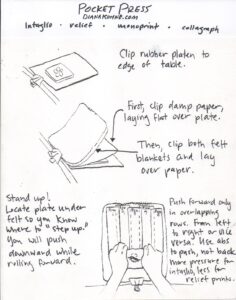 POCKET PRESS
intaglio • relief • monoprint • collagraph
Clip rubber platen to
edge of table.
First, clip damp paper,
laying flat over plate.
Then, clip both felt
blankets and lay
over paper.
Stand up!
Locate plate under
felt so you know
where to "step up."
You will push
downward while
rolling forward.
Push forward only
in overlapping
rows. From left
to right or vice
versa. Use abs
to push, not back.
more pressure for
intaglio, less for
relief prints.